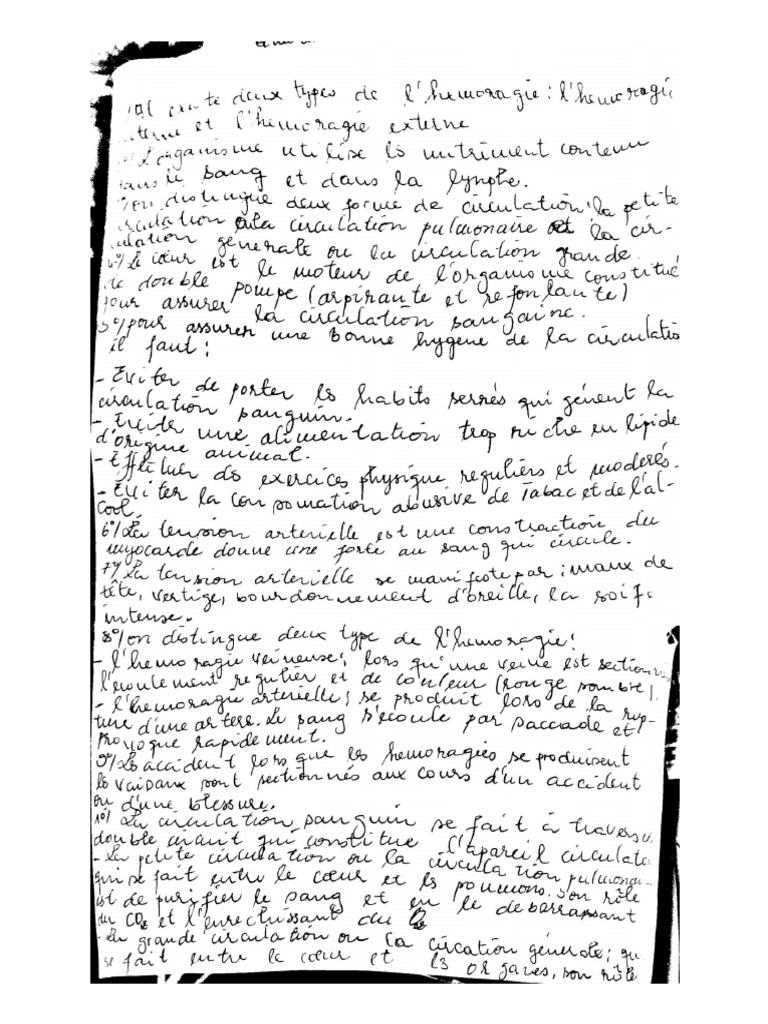 existe deux types de l'hemoragie : l'hemoragie
terne et l'hemoragie externe
L'organisme utilise ls nutriment contenu
dans le sang et dans la lymphe.
on distingue deux forme de circulation : la petite
circulation ou la circulation pulmonaire et la cir-
culation generale ou la circulation grande.
4°/ Le cœur est le moteur de l'organisme constitué
de double pompe (aspirante et refoulante)
pour assurer la circulation sanguine.
5°/ pour assurer une bonne hygene de la circulatio
il faut :
- Eviter de porter ls habits serrés qui génent la
circulation sanguin.
- Evite une alimentation trop riche en lipide
d'origine animal.
- Effectuer ds exercices physique reguliers et moderés.
- Eviter la consomation abusive de Tabac et de l'al-
cool.
6°/ La tension arterielle est une constraction du
myocarde donne une force au sang qui circule.
7°/ La tension arterielle se manifeste par : maux de
tête, vertige, bourdonnement d'oreille, la soif
intense.
8°/ on distingue deux type de l'hemoragie :
- l'hemoragie veineuse ; lors qu'une veine est section
l'ecoulement regulier et de couleur (rouge sombre).
- l'hemoragie arterielle ; se produit lors de la rup-
ture d'une artere. Le sang s'ecoule par saccade et
provoque rapidement.
9°/ Ls accident lors que les hemoragies se produisent
ls vaisaux sont sectionnés aux cours d'un accident
ou d'une blessure.
1°/ La circulation sanguin se fait à travers
double circuit qui constitue l'apareil circulato
- La petite circulation ou la circulation pulmonai-
qui se fait entre le cœur et ls poumons. Son rôle
est de purifier le sang et en le debarrassant
du CO2 et l'enrechissant du
- La grande circulation ou la circation générale ; qu
se fait entre le cœur et ls organes, son rôle